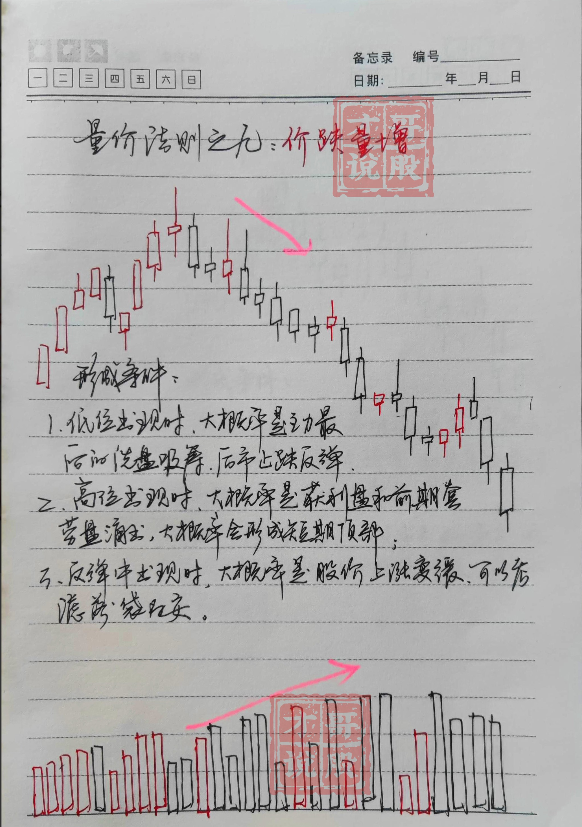 备忘录 编号
一 二 三 四 五 六 日
日期: 年 月 日
量价法则之九:价跌量增
才哥
说股
形成条件:
1、低位出现时、大概率是主力最
后的洗盘吸筹、后市止跌反弹.
二、高位出现时、大概率是获利盘和前期套
劳盘涌出,大概率会形成短期顶部;
三、反弹中出现时,大概率是股价上涨变缓、可以考
滤落袋为安。
才哥
说股